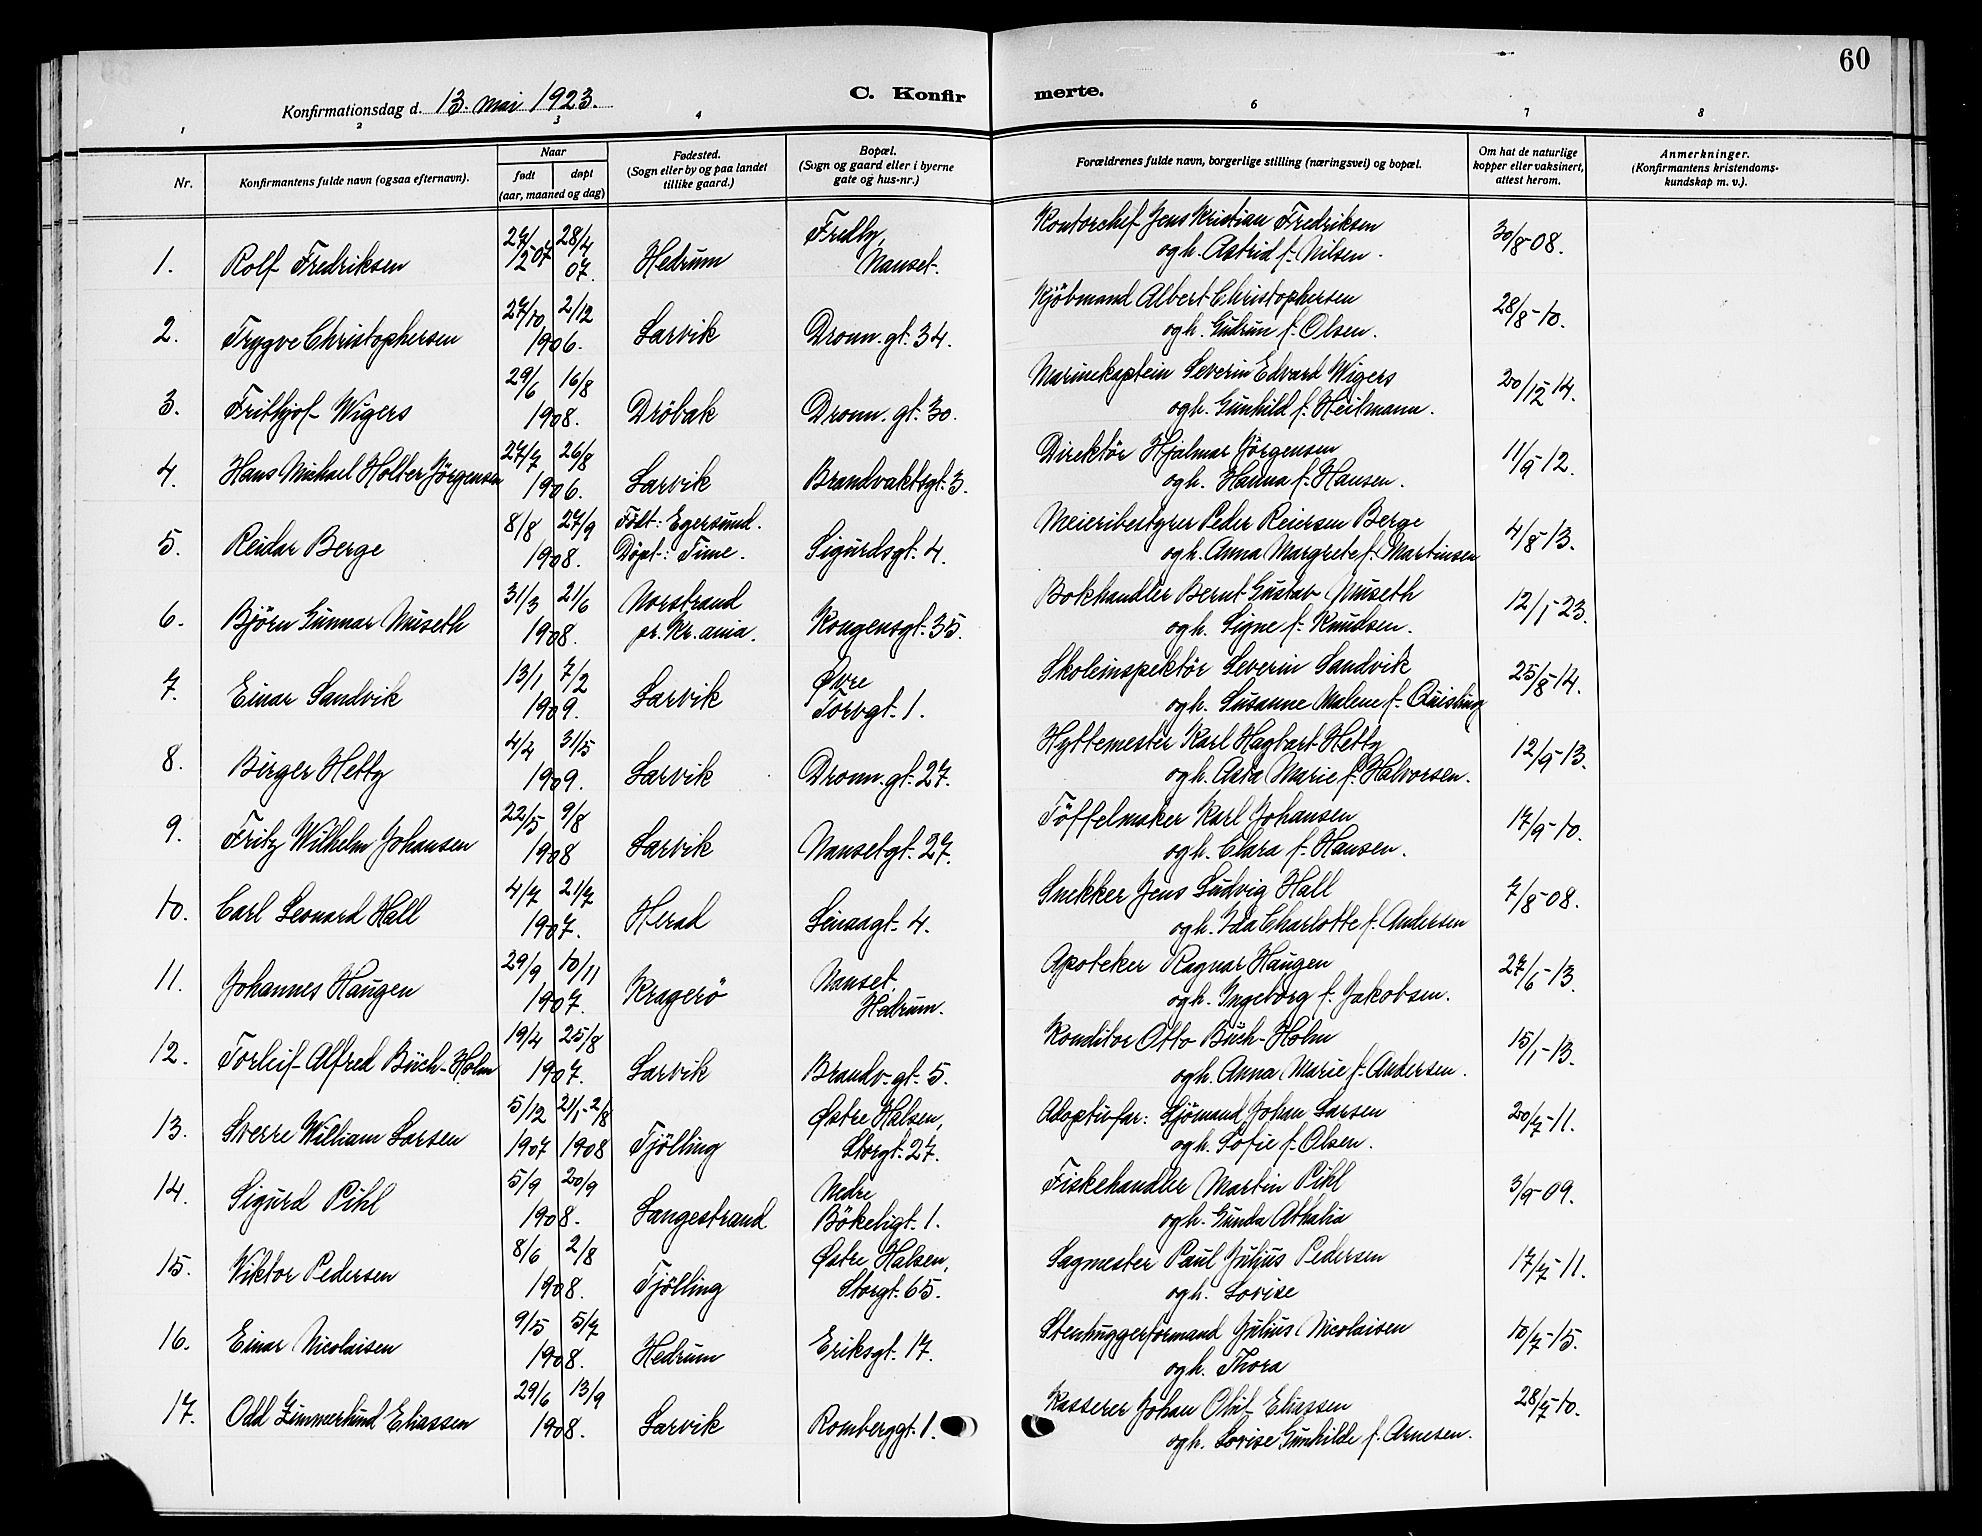 60
Konfirmationsdag d. 13. mai 1923.
C. Konfirmerte.
1 2 3 4 6 7 8
Nr.
Konfirmantens fulde navn (ogsaa efternavn).
Naar
født
døpt
(aar, maaned og dag)
Fødested.
(Sogn eller by og paa landet
tillike gaard.)
Bopæl.
(Sogn og gaard eller i byerne
gate og hus-nr.)
Forældrenes fulde navn, borgerlige stilling (næringsvei) og bopæl.
Om hat de naturlige
kopper eller vaksinert,
attest herom.
Anmerkninger.
(Konfirmantens kristendoms-
kundskap m. v.).
1. Rolf Fredriksen 27/2 07 28/4 07. Hedrum Fredly, Nanset. Kontorchef Jens Kristian Fredriksen 30/8-08.
og h. Astrid f. Nilsen.
2. Trygve Christophersen 27/10 2/12 1906. Larvik Dronn. gt. 34. Kjöbmand Albert Christophersen 28/8-10.
og h. Gudrun f. Olsen.
3. Frithjof Wigers 29/6 16/8 1908. Dröbak Dronn. gt. 30. Marinekaptein Severin Edvard Wigers 20/12-14.
og h. Gunhild f. Heitmann.
4. Hans Michael Holter Jörgensen 27/7 26/8 1906. Larvik Brandvaktsgt. 3. Direktör Hjalmar Jörgensen 11/9-12.
og h. Hanna f. Hansen.
5. Reidar Berge 8/8 27/9 1908. Födt: Egersund. Döpt: Time. Sigurdsgt. 4. Meieribestyrer Peder Reiersen Berge 4/8-13.
og h. Anna Margrete f. Martinsen
6. Björn Gunnar Museth 31/3 21/6 1908. Norstrand pr. Kr.ania. Kongensgt. 35. Bokhandler Bernt Gustav Museth 12/1-23.
og h. Signe f. Knudsen.
7. Einar Sandvik 13/1 7/2 1909. Larvik Øvre Torvgt. 1. Skoleinspektör Severin Sandvik 25/8-14.
og h. Susanne Malene f. Quisling
8. Birger Hetty 4/4 31/5 1909. Larvik Dronn. gt. 27. Hyttemester Karl Hagbart Hetty 12/9-13.
og h. Asta Marie f. Halvorsen.
9. Fritz Wilhelm Johansen 22/5 9/8 1908 Larvik Nansetgt. 27. Töffelmaker Karl Johansen 17/9-10.
og h. Clara f. Hansen.
10. Carl Leonard Hall 4/7 21/7 1907. Herad Lenaagt. 4. Snekker Jens Ludvig Hall 7/8-08.
og h. Ida Charlotte f. Andersen
11. Johannes Haugen 29/9 10/11 1907. Kragerö Nanset, Hedrum. Apoteker Ragnar Haugen 27/6-13.
og h. Ingeborg f. Jakobsen.
12. Torleif Alfred Buch-Holm 19/4 25/8 1907. Larvik Brandv. gt. 5. Konditor Otto Buch-Holm 15/1-13.
og h. Anna Marie f. Andersen.
13. Sverre William Larsen 5/12 1907 21/1-2/8 1908 Tjölling Østre Halsen, Storgt. 27. Adoptivfar: Sjömand Johan Larsen 20/7-11.
og h. Sofie f. Olsen.
14. Sigurd Pihl 5/9 20/9 1908. Langestrand Nedre Bökeligt. 1. Fiskehandler Martin Pihl 3/9-09.
og h. Gunda Athalia
15. Viktor Pedersen 8/6 2/8 1908. Tjölling Østre Halsen, Storgt. 65. Sagmester Paul Julius Pedersen 17/7-11.
og h. Lovise
16. Einar Nicolaisen 9/5 5/7 1908. Hedrum Eriksgt. 17. Stenhuggerformand Julius Nicolaisen 10/7-15.
og h. Thora
17. Odd Zimmerlund Eliassen 29/6 13/9 1908. Larvik Romberggt. 1. Kasserer Johan Eliassen 28/7-10.
og h. Lovise Gunhilde f. Arnesen.